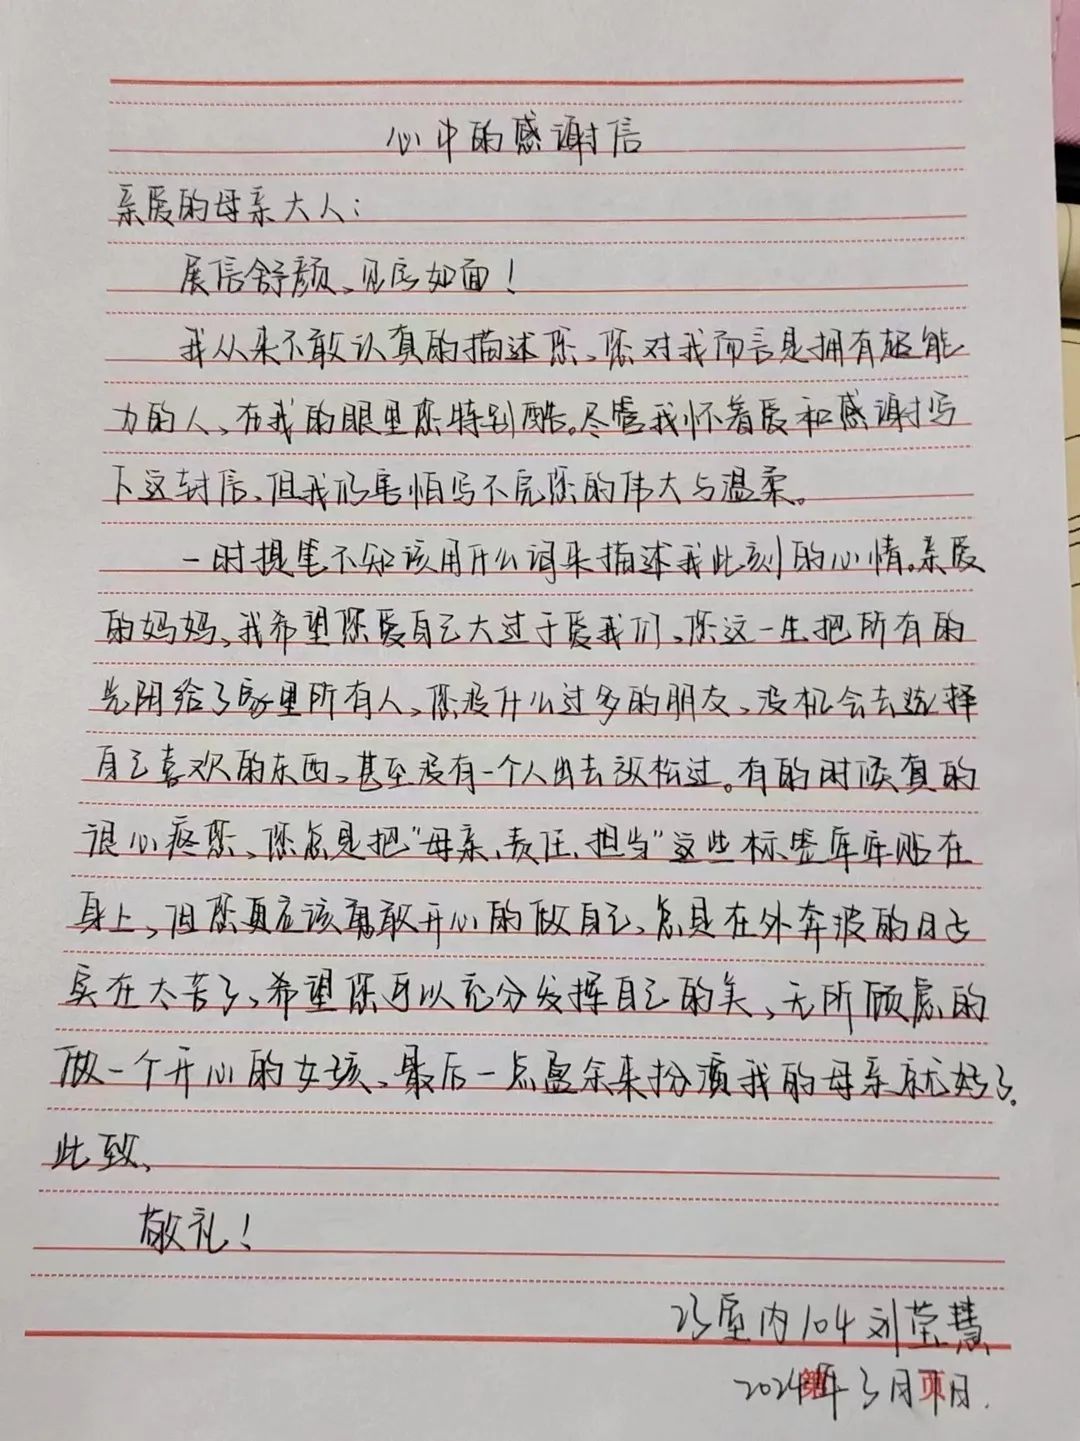 心中的感谢信
亲爱的母亲大人：
展信舒颜、见信如面！
我从来不敢认真的描述您、您对我而言是拥有超能
力的人、在我的眼里您特别酷。尽管我怀着爱和感谢写
下这封信、但我仍害怕写不完您的伟大与温柔。
一时提笔不知该用什么词来描述我此刻的心情。亲爱
的妈妈、我希望您爱自己大过于爱我们、您这一生把所有的
光阴给了家里所有人、您没什么过多的朋友、没机会去选择
自己喜欢的东西、甚至没有一个人出去放松过。有的时候真的
很心疼您、您总是把“母亲、责任、担当”这些标签库库贴在
身上、但您真应该勇敢开心的做自己、总是在外奔波的日子
实在太苦了、希望您可以充分发挥自己的美、无所顾虑的
做一个开心的女孩、最后一点盈余来扮演我的母亲就好了。
此致、
敬礼！
23室内104 刘莹慧
2024年3月 日.